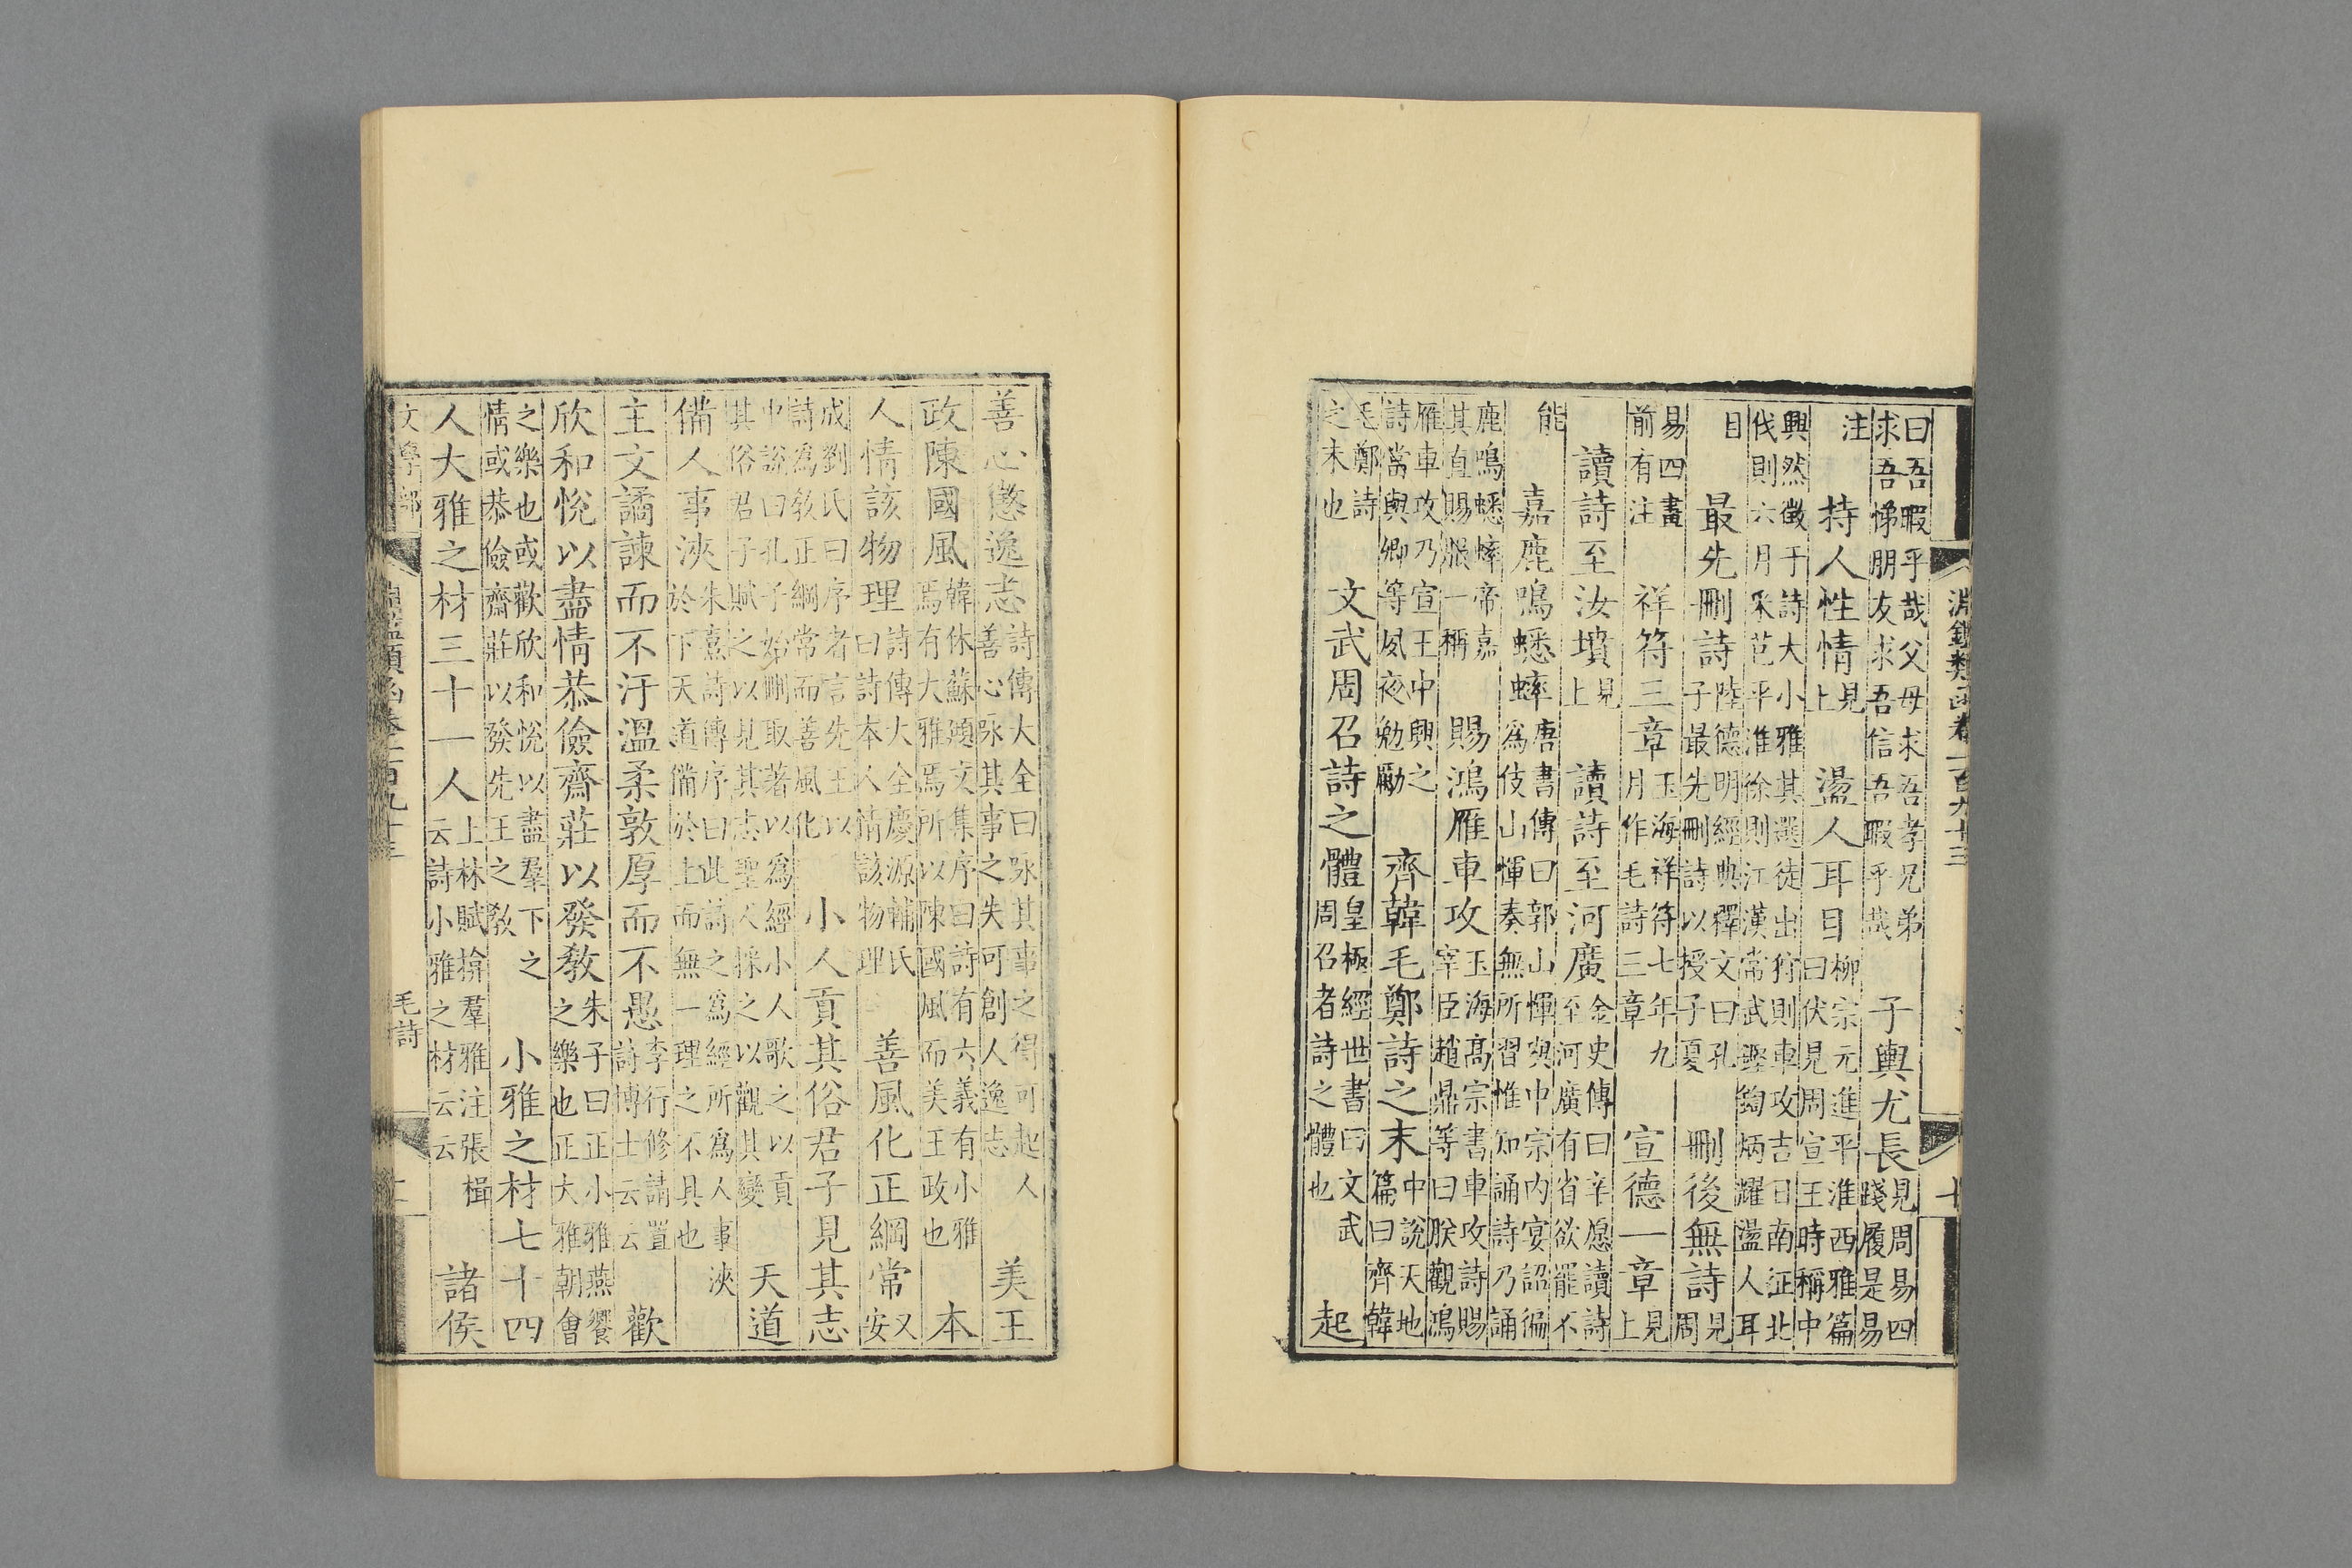 淵鑑類函卷一百九十三 十
曰吾暇乎哉父母求吾孝兄弟求吾悌朋友求吾信吾暇乎哉 子輿尤長見周易四踐履是易
注 持人性情見上 盪人耳目柳宗元進平淮西雅篇曰伏見周宣王時稱中
興然徵于詩大小雅其選徒出狩則車攻吉日南征北伐則六月采芑平淮徐則江漢常武鏗鍧炳耀盪人耳
目 最先刪詩陸德明經典釋文曰孔子最先刪詩以授子夏 刪後無詩見周
易四畫前有注 祥符三章玉海祥符七年九月作毛詩三章 宣德一章見上
讀詩至汝墳見上 讀詩至河廣金史傳曰辛愿讀詩至河廣有省欲罷不
能 嘉鹿鳴蟋蟀唐書傳曰郭山惲與中宗內宴詔徧爲伎山惲奏無所習惟知誦詩乃誦
鹿鳴蟋蟀帝嘉其直賜服一稱 賜鴻雁車攻玉海高宗書車攻詩賜宰臣趙鼎等曰朕觀鴻
雁車攻乃宣王中興之詩當與卿等夙夜勉勵 齊韓毛鄭詩之末中說天地篇曰齊韓
毛鄭詩之末也 文武周召詩之體皇極經世書曰文武周召者詩之體也 起
善心懲逸志詩傳大全曰詠其事之得可起人善心詠其事之失可創人逸志 美王
政陳國風韓休蘇頲文集序曰詩有六義有小雅焉有大雅焉所以陳國風而美王政也 本
人情該物理詩傳大全慶源輔氏曰詩本人情該物理 善風化正綱常又安
成劉氏曰序者言先王以詩爲敎正綱常而善風化 小人貢其俗君子見其志
中說曰孔子始刪取著以爲經小人歌之以貢其俗君子賦之以見其志聖人採之以觀其變 天道
備人事浹朱熹詩傳序曰此詩之爲經所爲人事浹於下天道備於上而無一理之不具也
主文譎諫而不汙溫柔敦厚而不愚李行修請置詩博士云云 歡
欣和悅以盡情恭儉齊莊以發敎朱子曰正小雅燕饗之樂也正大雅朝會
之樂也或歡欣和悅以盡羣下之情或恭儉齊莊以發先王之敎 小雅之材七十四
人大雅之材三十一人上林賦揜羣雅注張楫云詩小雅之材云云 諸侯
文學部 淵鑑類函卷一百九十三 毛詩